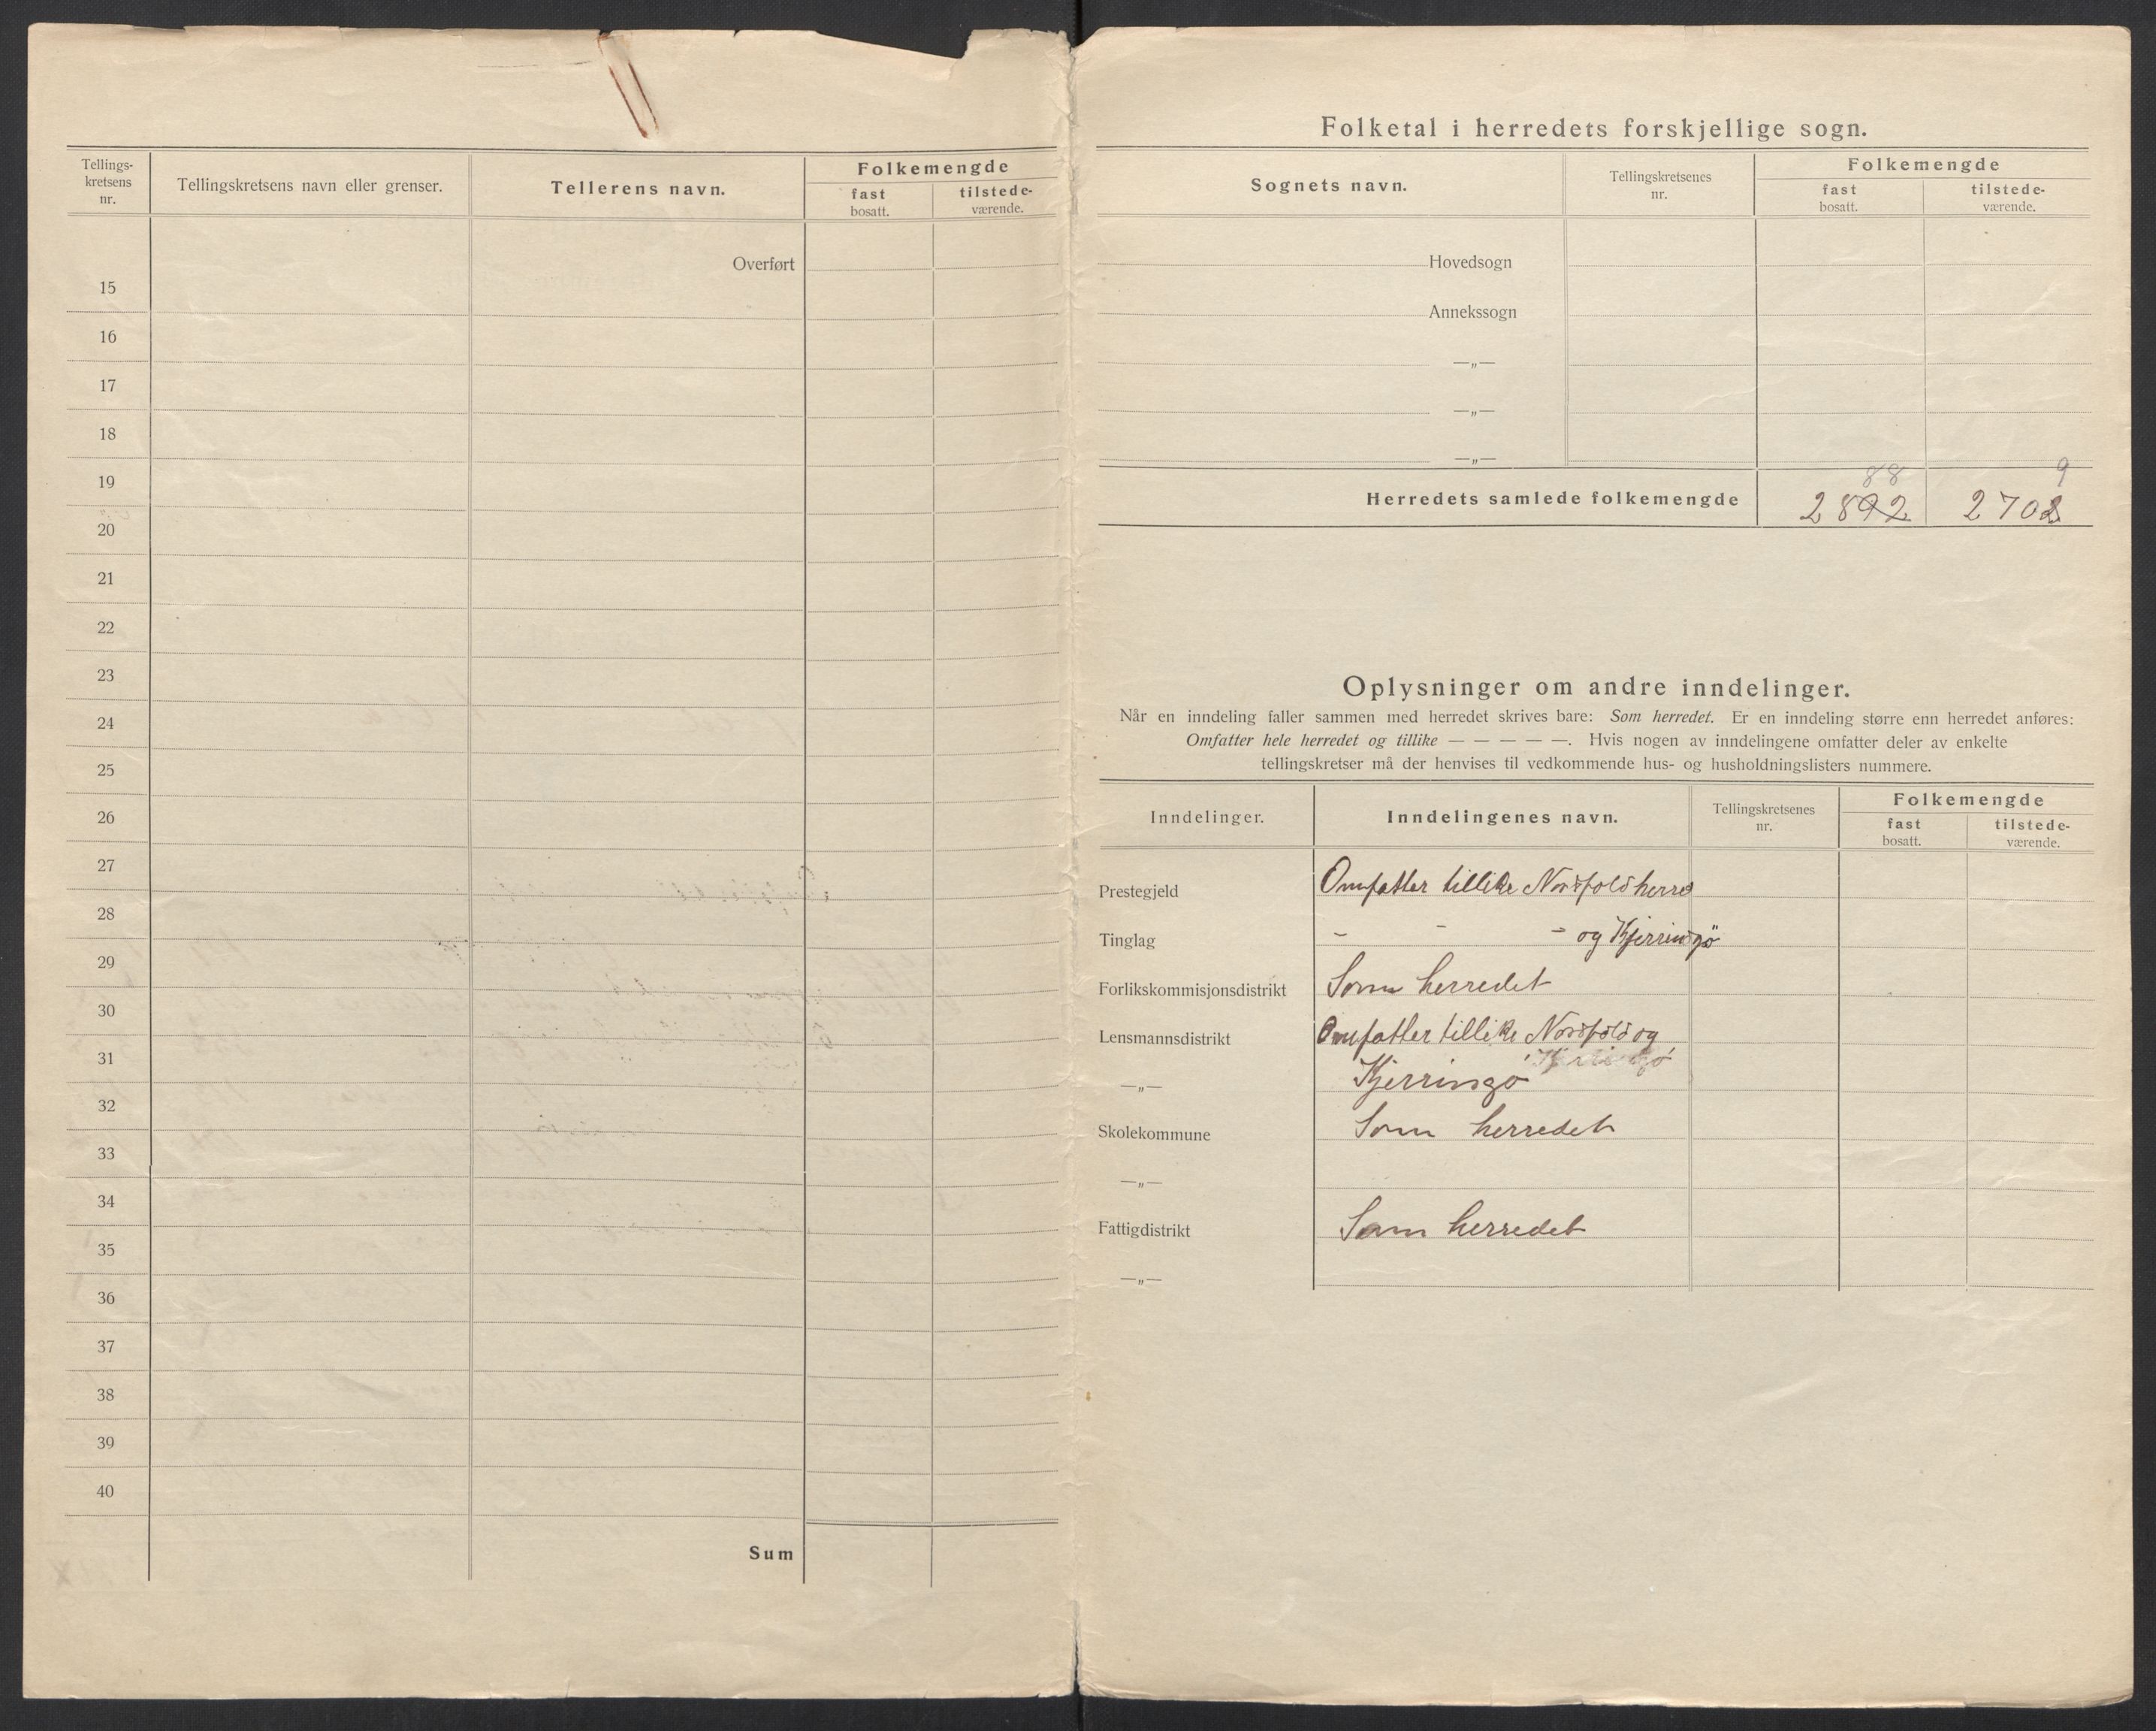 Tellings-
kretsens
nr.
Tellingskretsens navn eller grenser.
Tellerens navn.
Folkemengde
fast
bosatt.
tilstede-
værende.
Overført
15
16
17
18
19
20
21
22
23
24
25
26
27
28
29
30
31
32
33
34
35
36
37
38
39
40
Sum
Folketal i herredets forskjellige sogn.
Sognets navn.
Tellingskretsenes
nr.
Folkemengde
fast
bosatt.
tilstede-
værende.
Hovedsogn
Annekssogn
—„—
—„—
—„—
88 9
Herredets samlede folkemengde 2892 2702
Oplysninger om andre inndelinger.
Når en inndeling faller sammen med herredet skrives bare: Som herredet. Er en inndeling større enn herredet anføres:
Omfatter hele herredet og tillike — — — — —. Hvis nogen av inndelingene omfatter deler av enkelte
tellingskretser må der henvises til vedkommende hus- og husholdningslisters nummere.
Inndelinger.
Inndelingenes navn.
Tellingskretsenes
nr.
Folkemengde
fast
bosatt.
tilstede-
værende.
Prestegjeld Omfatter tillike Nordfold herred
Tinglag - - - og Kjerringö
Forlikskommisjonsdistrikt Som herredet
Lensmannsdistrikt Omfatter tillike Nordfold og
—„— Kjerringö
Skolekommune Som herredet
—„—
Fattigdistrikt Som herredet
—„—